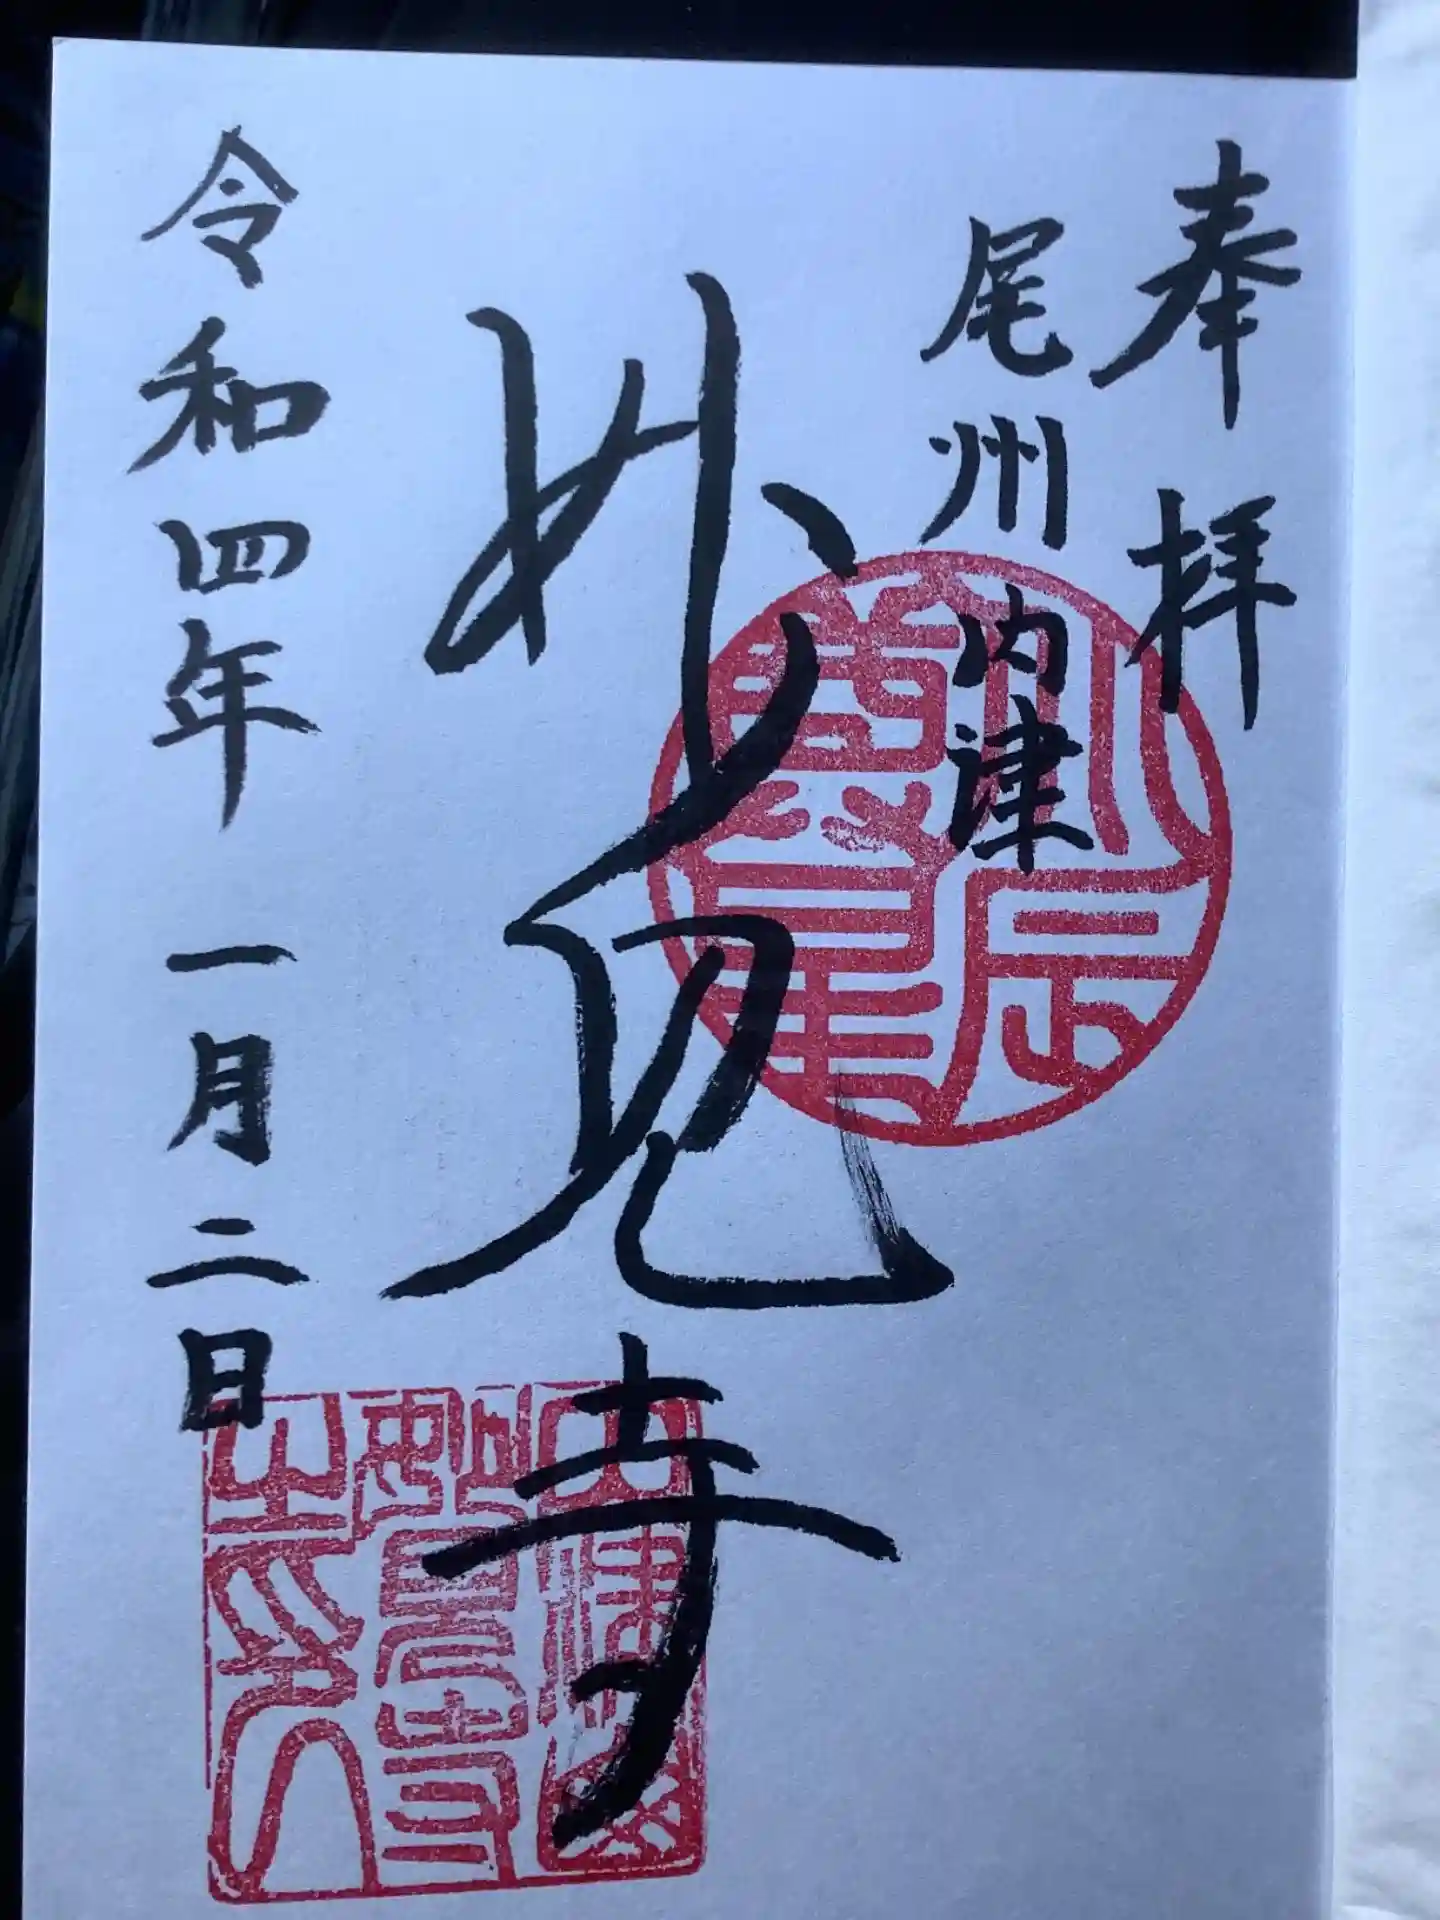 奉拝
尾州内津
妙見寺
令和四年一月二日